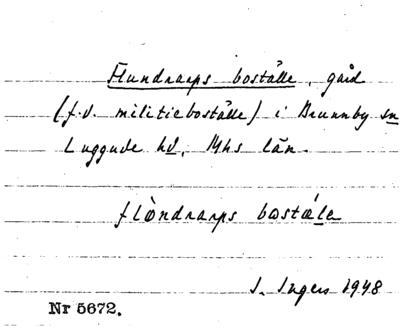 Flundrarps boställe, gård
(f.d. militieboställe) i Brunnby sn
Luggude hd, Mhs län.
flòndrarps bostæle
I. Ingers 1948
Nr 5672.